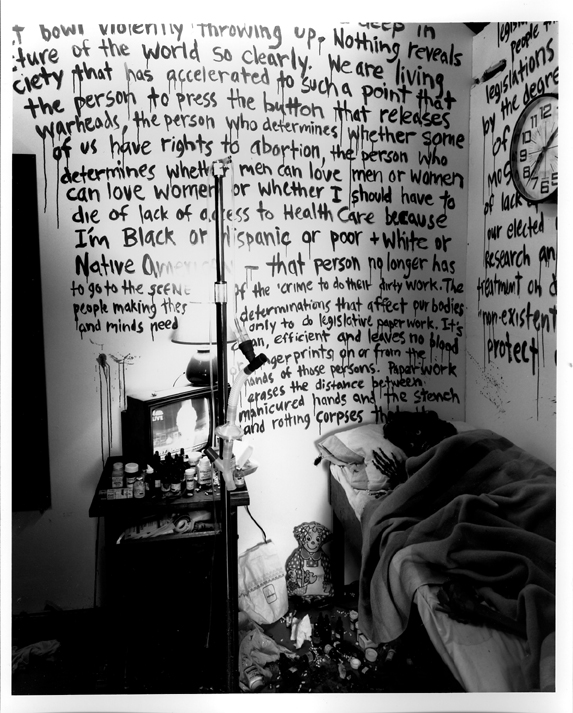 bowl violently throwing up. deep in
ture of the world so clearly. Nothing reveals
ciety that has accelerated to such a point that
We are living
the person to press the button that releases
warheads, the person who determines whether some
of us have rights to abortion, the person who
determines whether men can love men or women
can love women or whether I should have to
die of lack of access to Health Care because
I'm Black or Hispanic or poor + white or
Native
that person no longer has
to go to the SCENE of the 'crime to do their dirty work. The
people making thes determinations that affect our bodies
and minds need only to do legislative paper work. It's
an, efficient and leaves no blood
nger prints on or from the
hands of those persons. Paper work
erases the distance between
manicured hands and the stench
and rotting corpses
people
legislations
by the degre
of
of lack
our elected
Research an
treatment on
"non-existent
protect
11 12 1
2
3
4
5
6
LIVE